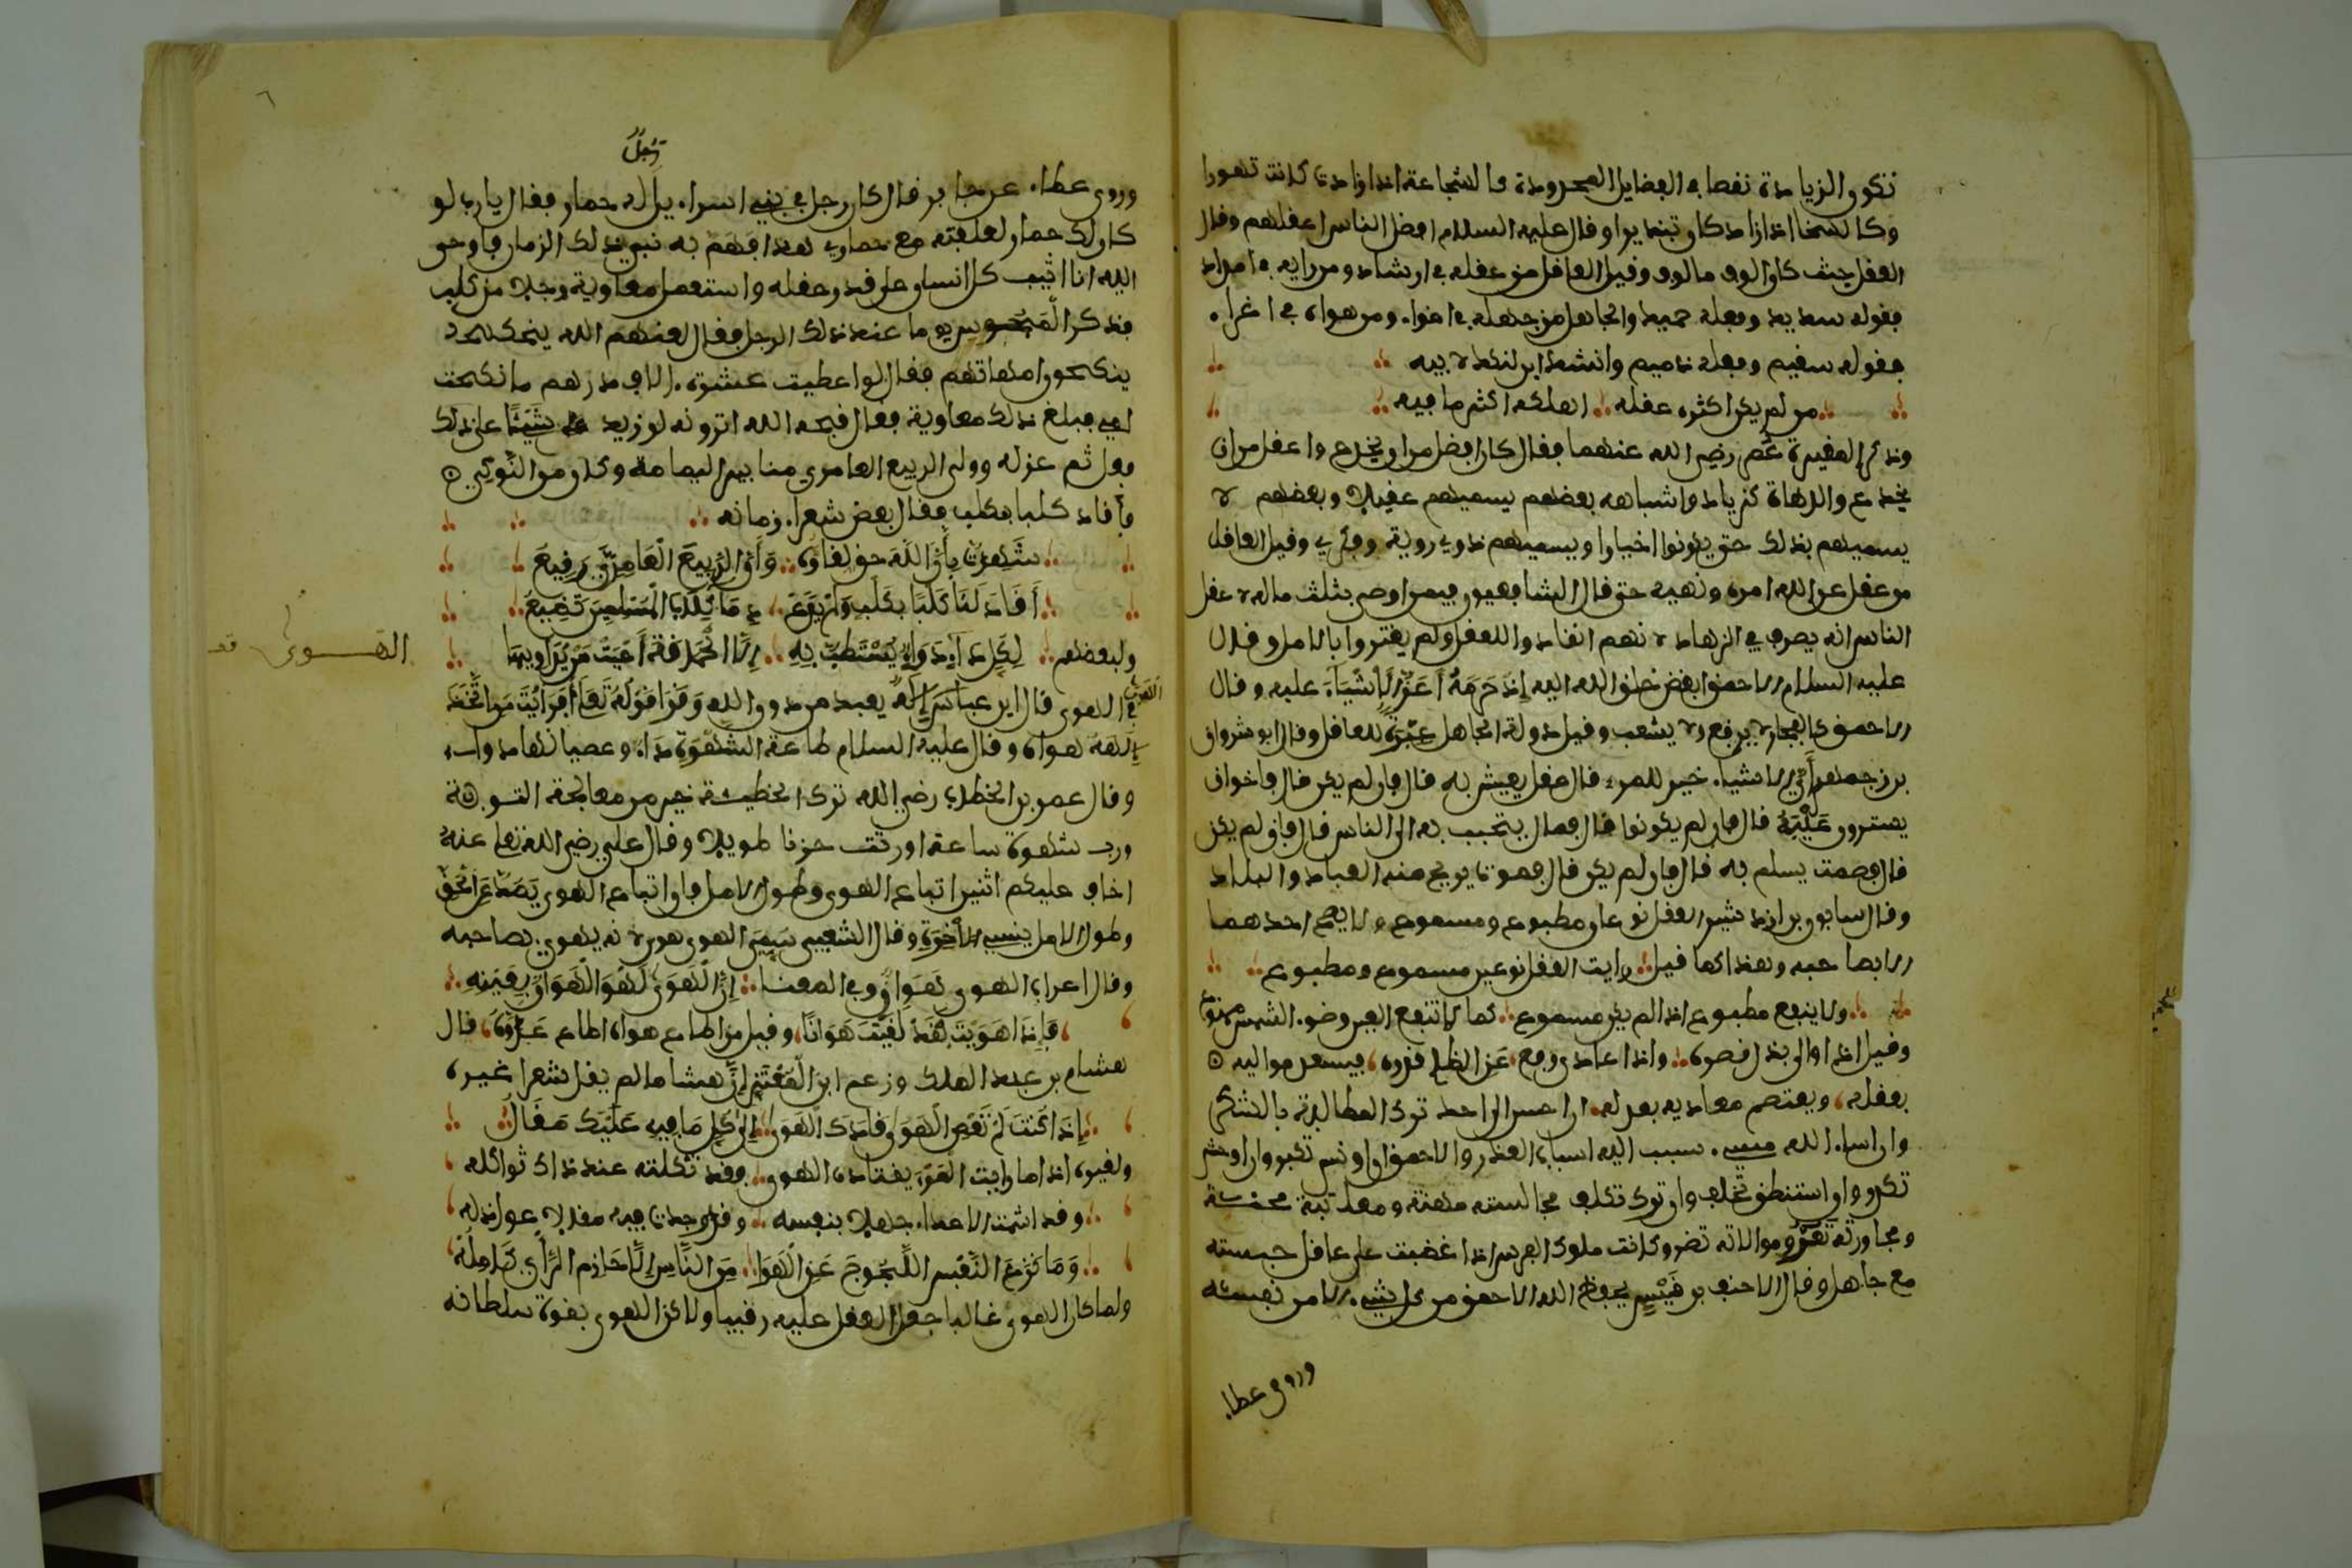 تكون الزيادة نقصا في الفضايل المحدودة كالشجاعة اذا زادت كانت تهورا
وكالسخا اذا زاد كان تبذيرا وقال عليه السلام افضل الناس اعقلهم وقال
العقل حيث كان الوف مالوف وقيل العاقل من عقله في ارشاد ومن رايه في امداد
فقوله سديد وفعله حميد والجاهل من جهله في اغوا. ومن هواه في اغرا.
فقوله سقيم وفعله ذميم وانشد ابن لنكك لابيه
من لم يكن اكثره عقله اهلكه اكثر ما فيه
وذكر المغيرة عمر رضي الله عنهما فقال كان افضل من ان يخدع واعقل من ان
يخدع والدهاة كزياد واشباهه بعضهم يسميهم عقلا وبعضهم لا
يسميهم بذلك حتى يكونوا اخيارا ويسميهم ذوي روية وفكر وقيل العاقل
من عقل عن الله امره ونهيه حتى قال الشافعيون فيمن اوصى بثلث ماله لاعقل
الناس انه يصرف في الزهاد لانهم انقادوا للعقل ولم يغتروا بالامل وقال
عليه السلام الاحمق ابغض خلق الله اليه اذ حرمه اعز الاشياء عليه وقال
الاحمق كالفخار لا يرقع ولا يشعب وقيل دولة الجاهل عبرة للعاقل وقال انوشروان
بزرجمهر أي الاشيا. خير للمر. قال عقل يعيش به قال فان لم يكن قال فاخوان
يسترون عليه قال فان لم يكونوا قال فمال يتحبب به الى الناس قال فان لم يكن
قال فصمت يسلم به قال فان لم يكن قال فموت يريح منه العباد والبلاد
وقال سابور بن ازدشير العقل نوعان مطبوع ومسموع ولا يصح احدهما
الا بصاحبه وهذا كما قيل رايت العقل نوعين مسموع ومطبوع
ولا ينفع مطبوع اذا لم يكن مسموع كما لا تنفع العين وضو. الشمس ممنوع
وقيل اذا والى بذل نصره واذا عادى رفع عن الظلم قدره فيسعد مواليه
بعقله ويعتصم معاديه بعدله ان احسن الى احد ترك المطالبة بالشكر
وان اسا. اليه مسي. سبب اليه اسباب العذر والاحمق ان اونس تكبر وان اوحش
تكدر وان استنطق تخلف وان ترك تكلف مجالسته مهنة ومعاتبته محنة
ومجاورته تغر وموالاته تضر وكانت ملوك الفرس اذا غضبت على عاقل حبسته
مع جاهل وقال الاحنف بن قيس يحفظ الله الاحمق من كل شي. الا من نفسه
وروى عطا.
٦
رجل
وروى عطا. عن جابر قال كان رجل في بني اسرا.يل له حمار فقال يا رب لو
كان لك حمار لعلفته مع حماري هذا فهم به نبي ذلك الزمان فاوحى
الله انا اثيب كل انسان على قدر عقله واستعمل معاوية رجلا من كلب
فذكر المجوس يوما عند ذلك الرجل فقال لعنهم الله
ينكحون امهاتهم فقال لو اعطيت عشرة.الاف درهم ما نكحت
امي فبلغ ذلك معاوية فقال قبحه الله اترونه لو زيد شيئا على ذلك
فعل ثم عزله وولى الربيع العامري منابر اليمامة وكان من النوكى
فأقاد كلبا بكلب فقال بعض شعرا. زمانه
شهدت بأن الله حق لقاؤه وأن الربيع العامري رفيع
أقاد لنا كلبا بكلب ولم يدع دما. كلاب المسلمين تضيع
ولبعضهم لكل دا. دوا. يستطب به الا الحماقة أعيت من يداويها
الهوى قال ابن عباس اله يعبد من دون الله وقرا قوله تعالى افرايت من اتخذ
إلهه هواه وقال عليه السلام طاعة الشهوة دا. وعصيانها دوا.
وقال عمر بن الخطاب رضي الله ترك الخطيئة خير من معالجة التوبة
ورب شهوة ساعة اورثت حزنا طويلا وقال علي رضي الله تعا عنه
اخاف عليكم اثنين اتباع الهوى وطول الامل فان اتباع الهوى يصد عن الحق
وطول الامل ينسي الآخرة وقال الشعبي سمي الهوى هوى لانه يهوي بصاحبه
وقال اعرابي الهوى هوان وفي المعنا إن الهوى لهو الهوان بعينه
فإذا هويت فقد لقيت هوانا وقيل من اطاع هواه اطاع عدوه قال
هشام بن عبد الملك وزعم ابن المعتز ان هشاما لم يقل شعرا غيره
إذا كنت لم تعص الهوى قادك الهوى إلى كل ما فيه عليك مقال
ولغيره اذا ما رايت المر. يقتاده الهوى فقد ثكلته عند ذاك ثواكله
وقد اشمت الاعدا. جهلا بنفسه وقد وجدت فيه مقالا عواذله
وما يردع النفس اللجوج عن الهوا من الناس إلا حازم الرأي كامله
ولما كان الهوى غالبا جعل العقل عليه رقيبا ولاكن الهوى بقوة سلطانه
الهوى
قف